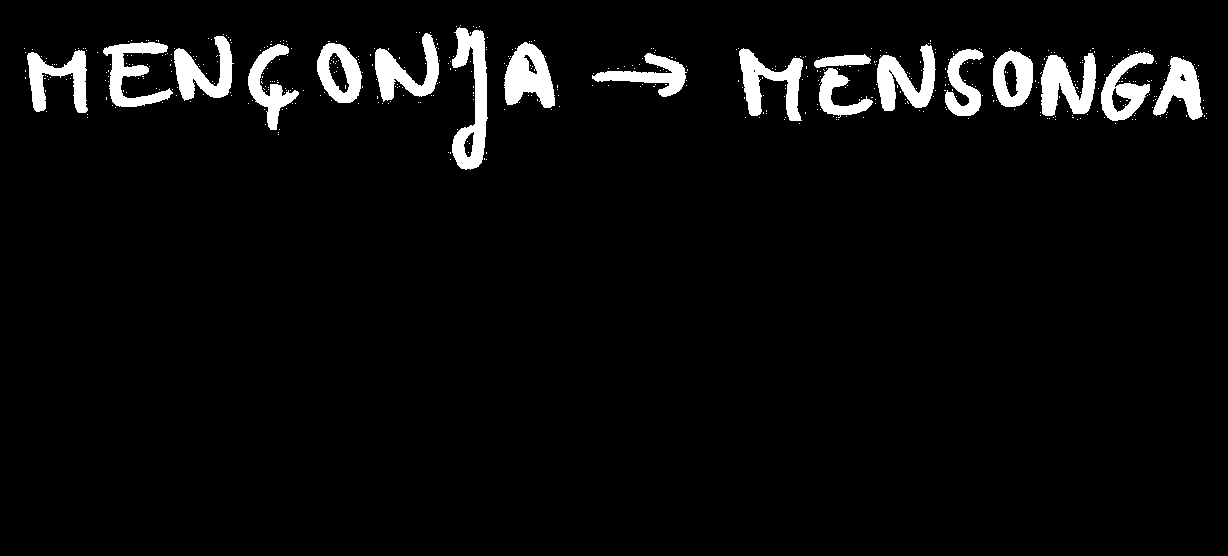 MENÇONJA → MENSONGA